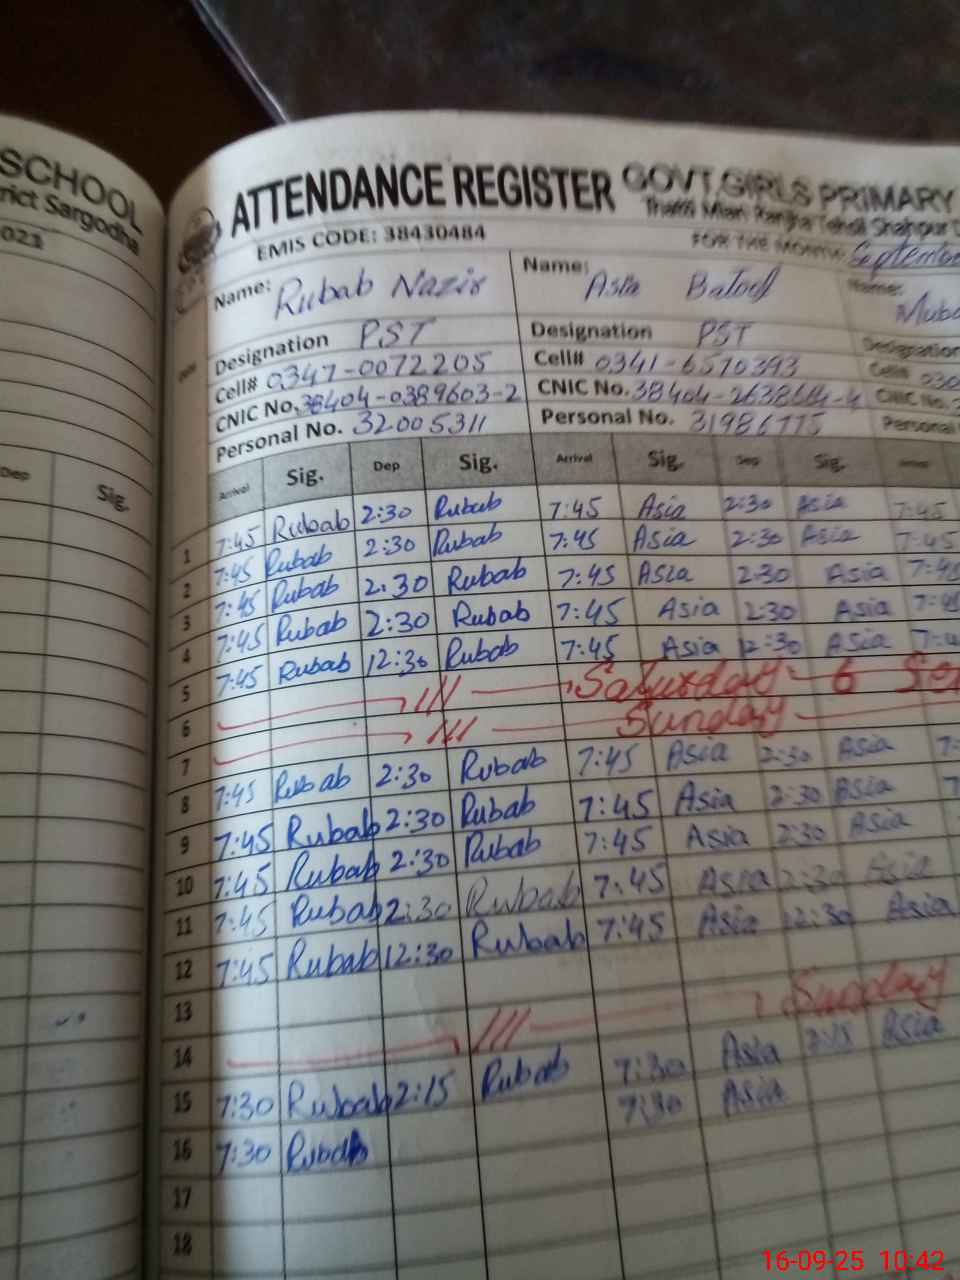 SCHOOL
rict Sargodha
2023
Dep Sig.
ATTENDANCE REGISTER GOVT.GIRLS PRIMARY
Thatti Mian Ranjha Tehsil Shahpur
EMIS CODE: 38430484 FOR THE MONTH: September
Name: Rubab Nazir Name: Asia Batool Name:
Designation PST Designation PST Designation
Cell# 0347-0072205 Cell# 0341-6570393 Cell# 030
CNIC No. 38404-0389603-2 CNIC No. CNIC No.
Personal No. 32005311 Personal No. 31986775 Personal
Arrival Sig. Dep Sig. Arrival Sig. Dep Sig.
1 7:45 Rubab 2:30 Rubab 7:45 Asia 2:30 Asia 7:45
2 7:45 Rubab 2:30 Rubab 7:45 Asia 2:30 Asia 7:45
3 7:45 Rubab 2:30 Rubab 7:45 Asia 2:30 Asia 7:45
4 7:45 Rubab 2:30 Rubab 7:45 Asia 2:30 Asia
5 7:45 Rubab 12:30 Rubab 7:45 Asia 12:30 Asia
6 Saturday 6
7 Sunday
8 7:45 Rubab 2:30 Rubab 7:45 Asia 2:30 Asia
9 7:45 Rubab 2:30 Rubab 7:45 Asia 2:30 Asia
10 7:45 Rubab 2:30 Rubab 7:45 Asia 2:30 Asia
11 7:45 Rubab 2:30 Rubab 7:45 Asia 2:30 Asia
12 7:45 Rubab 12:30 Rubab 7:45 Asia 12:30 Asia
13
14 Sunday
15 7:30 Rubab 2:15 Rubab 7:30 Asia 2:15 Asia
16 7:30 Rubab 7:30 Asia
17
18
16-09-25 10:42